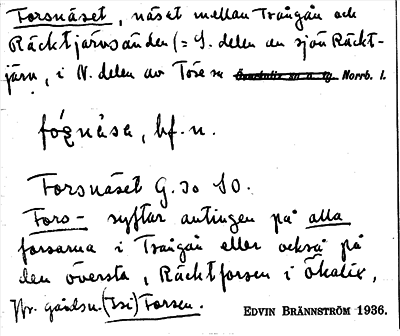 Forsnäset, näset mellan Trångån och
Räcktjärvsänden (= S. delen av sjön Räckt-
järv, i N. delen av Töre sn Norrb. l.
fógnäsa, bf. n.
Forsnäset G. 30 SO.
Fors- syftar antingen på alla
forsarna i Trångån eller också på
den översta, Räcktforsen i Ökalix,
Jfr. gårdsn. (Isi) Forsen.
EDVIN BRÄNNSTRÖM 1936.